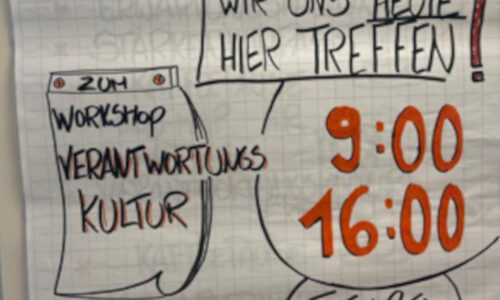 WIR UNS HEUTE
HIER TREFFEN!
ZUM
WORKSHOP
VERANTWORTUNGS
KULTUR
9:00
16:00